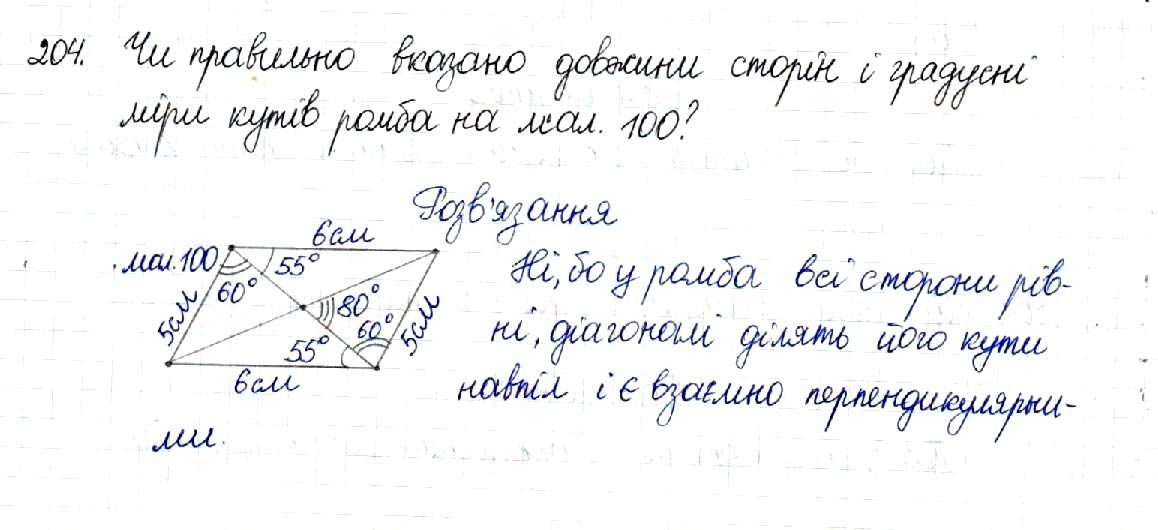 204. Чи правильно вказано довжини сторін і градусні
міри кутів ромба на мал. 100?
Розв'язання
6см
мал.100
55°
60°
5см
80°
60°
5см
55°
6см
Ні, бо у ромба всі сторони рів-
ні, діагоналі ділять його кути
навпіл і є взаємно перпендикулярни-
ми.